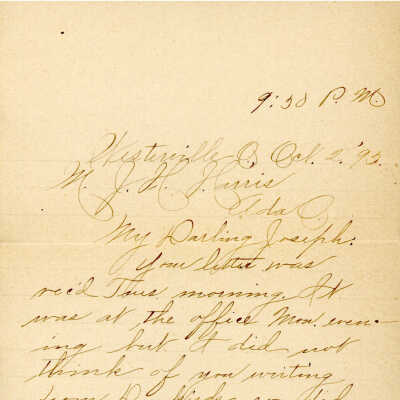 9:30 P. M.
Westerville O. Oct. 2, '93.
M. J. W. Harris
Ada O.
My Darling Joseph:
Your letter was
rec'd This morning. It
was at the office Mon. even-
ing but I did not
think of you writing
from D.